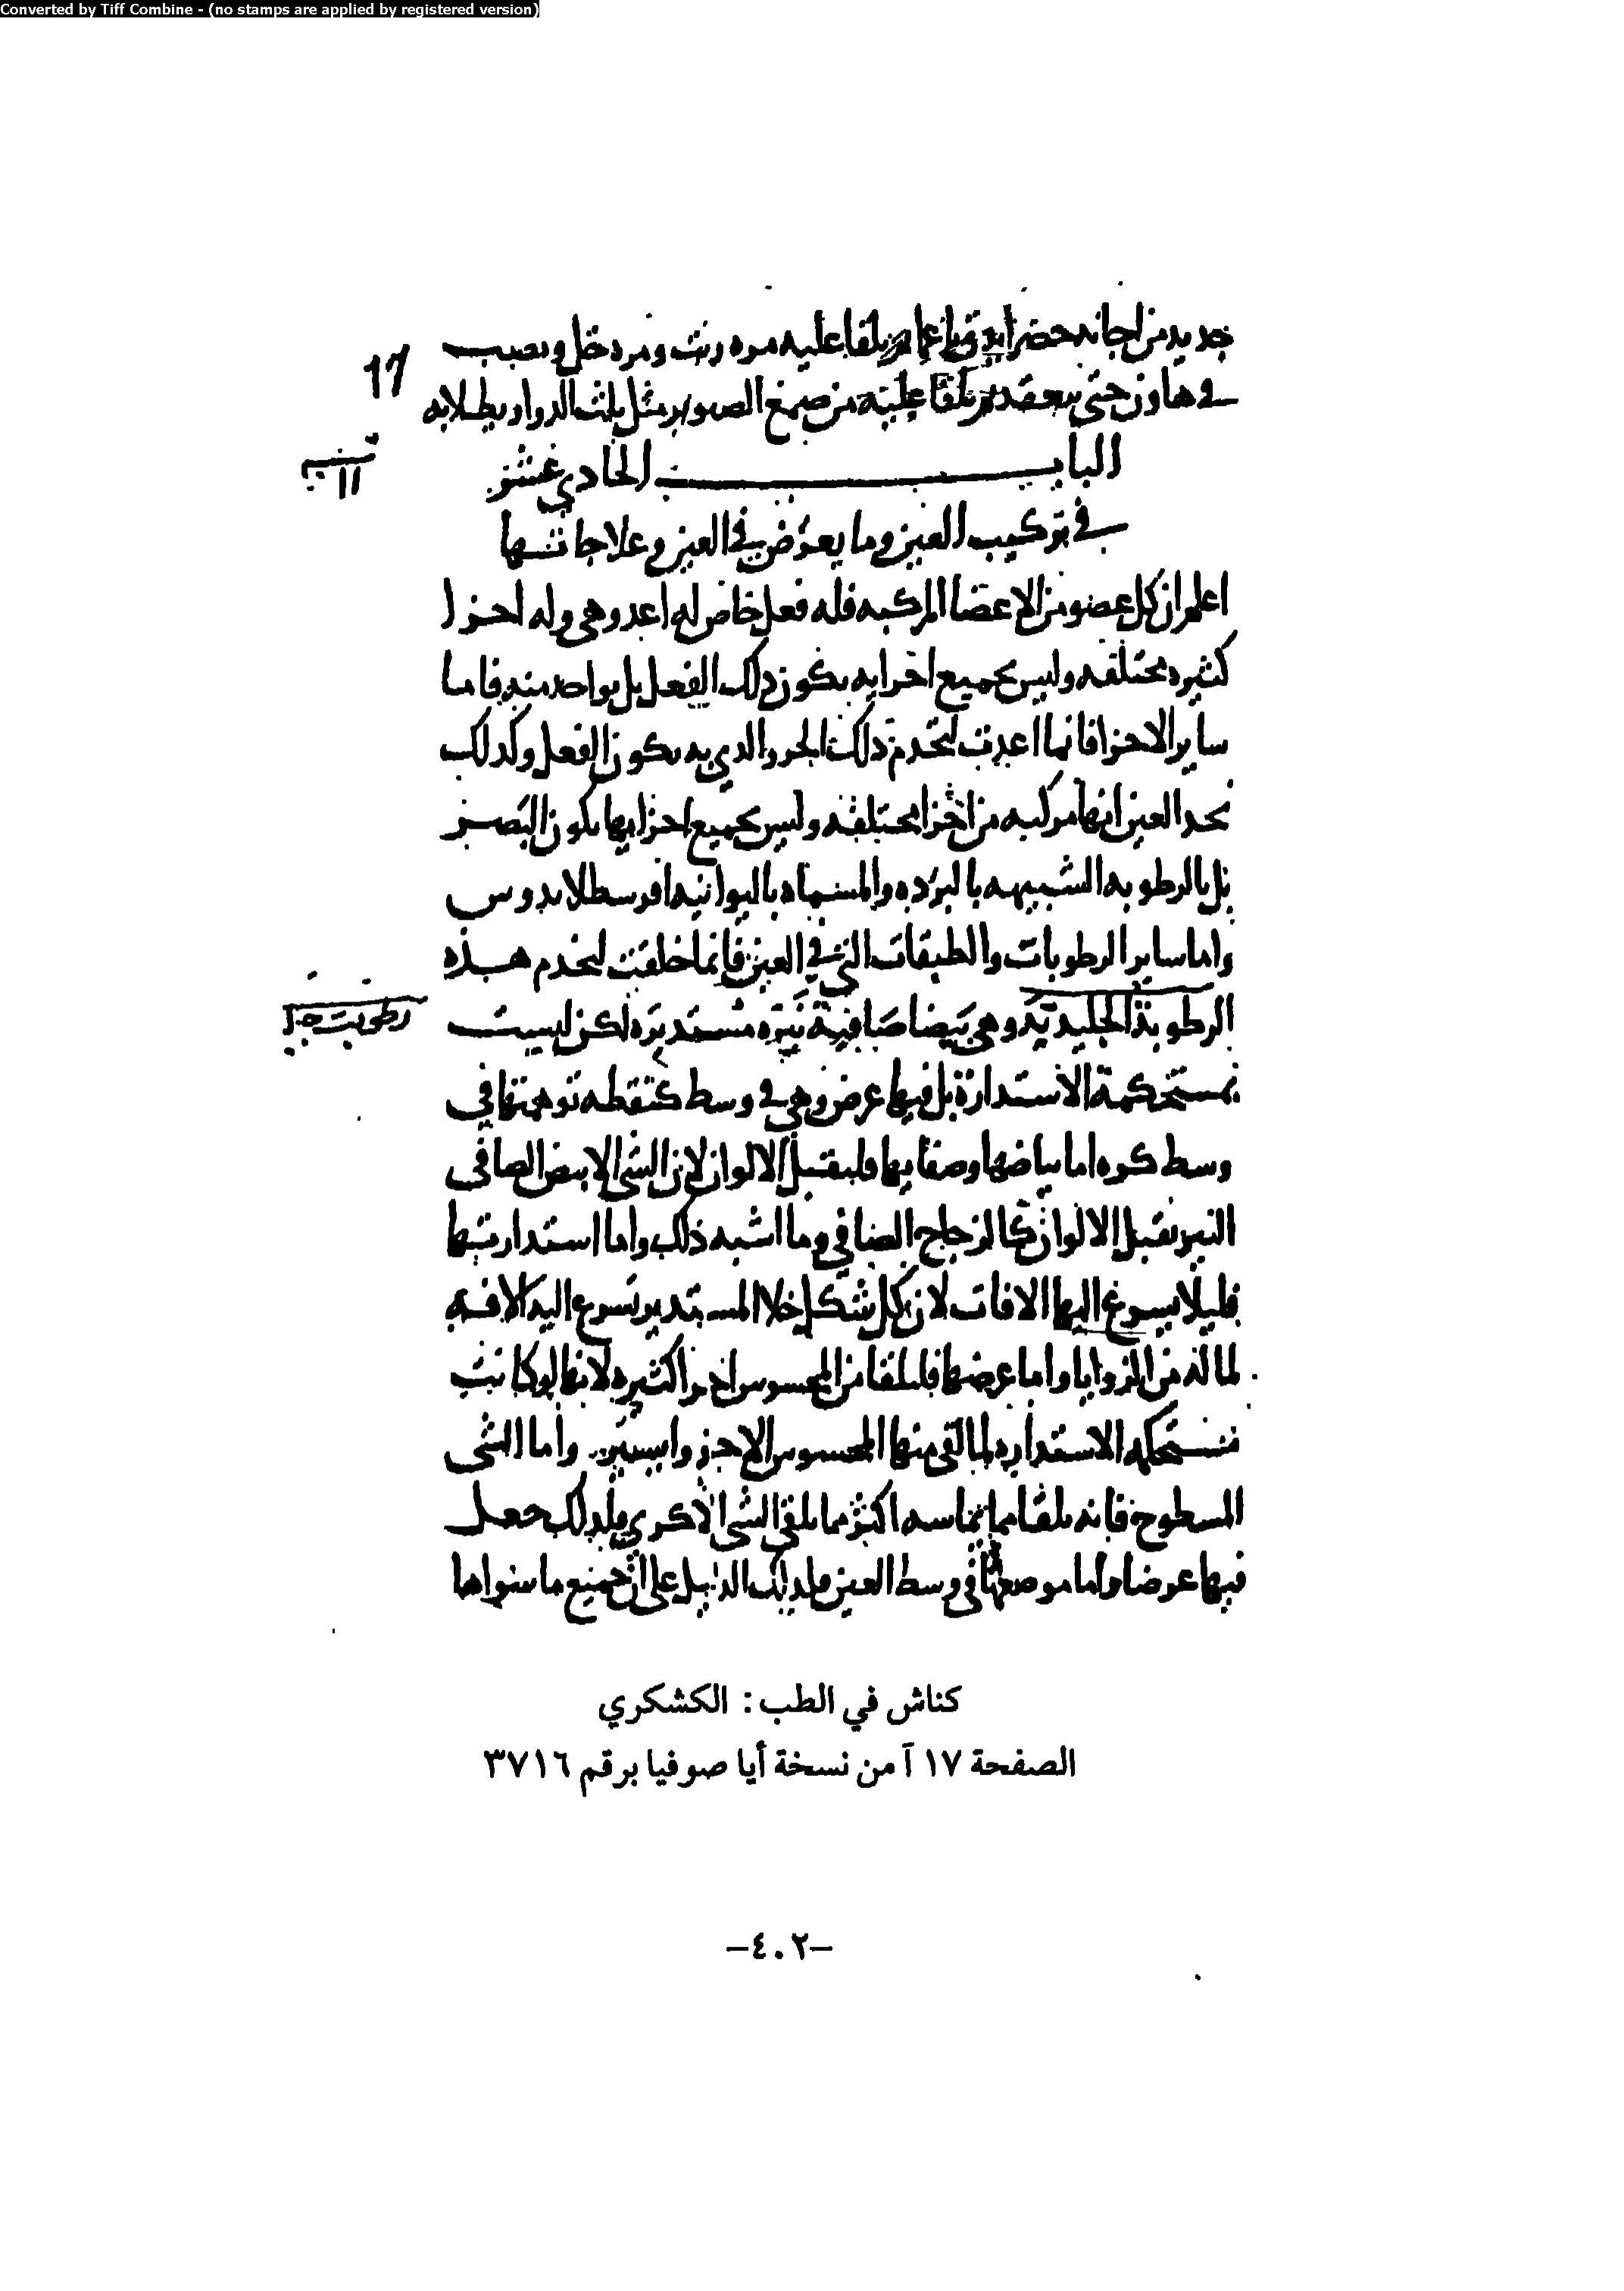 Converted by Tiff Combine - (no stamps are applied by registered version)
جديد من اجانه خضرا يلقا عليه مره زيت ومره خل ويصب
17
في هاون حتى ينعقد ثم يلقا عليه من صمغ الصنوبر مثل ثلث الدوا ويطلا به
الباب الحادي عشر
١١
في تركيب العين وما يعرض في العين وعلاجاتها
اعلم ان كل عضو من الاعضا المركبه فله فعل خاص له اعد وهي وله احزا
كثيره مختلفه وليس بجميع اجزايه يكون ذلك الفعل بل بواحد منه فاما
ساير الاجزا فانما اعدت لتخدم ذلك الجزو الذي به يكون الفعل وكذلك
نجد العين انها مركبه من اجزا مختلفه وليس بجميع اجزايها يكون البصر
بل بالرطوبه الشبيهه بالبرده والمسماه باليوانيه اقرسطلايدوس
واما ساير الرطوبات والطبقات التي في العين فانما خلقت لتخدم هذه
الرطوبة الجليدية وهي بيضا صافية نيره مستديره لكن ليست
بمستحكمة الاستدارة بل فيها عرض وهي في وسط كنقطه توهمتها في
وسط كره اما بياضها وصفايها فليقبل الالوان لان الشي الابيض الصافي
النير يقبل الالوان كالزجاج الصافي وما اشبه ذلك واما استدارتها
فليلا يسرع اليها الافات لان كل شكل خلا المستدير تسرع اليه الافه
لما له من الزوايا واما عرضها فليلقا من المحسوس اجزا كثيره لانها لو كانت
مستحكمه الاستداره لما لقي منها المحسوس الا جزوا يسير واما الشي
المسطوح فانه يلقا مما يماسه اكثر مما يلقي الشي الاكري فلذلك جعل
فيها عرضا واما موضعها في وسط العين فلذلك الدليل على ان جميع ما سواها
كناش في الطب : الكشكري
الصفحة ١٧ آ من نسخة أيا صوفيا برقم ٣٧١٦
–٤٠٢–